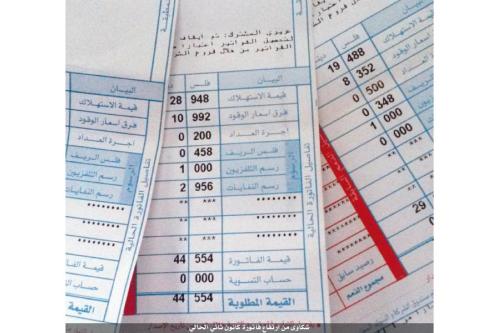 عزيزي المشترك: تم ايقاف
لتحصيل الفواتير اعتبارا
الفواتير من خلال فروع
البيان فلس
قيمة الاستهلاك 948 28
فرق اسعار الوقود 992 10
اجرة العداد 200 0
فلس الريف 458 0
رسم التلفزيون 000 1
رسم النفايات 956 2
******** ** ***
******** ** ***
قيمة الفاتورة 554 44
حساب التسوية 000 0
القيمة المطلوبة 554 44
الرسوم
تفاصيل الفاتورة الحالية
البيان
قيمة الاستهلاك
فرق اسعار الوقود
اجرة العداد
فلس الريف
رسم التلفزيون
رسم النفايات
********
********
قيمة الفاتورة
حساب التسوية
القيمة المطلوبة
الرسوم
تفاصيل الفاتورة الحالية
488 19
352 8
500 0
348 0
000 1
000
29
رصيد سابق
مجموع الفواتير
شكاوى من ارتفاع فاتورة كانون ثاني الحالي